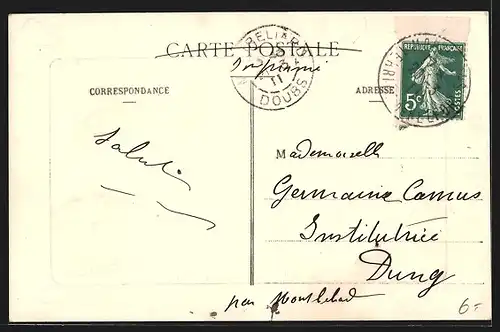 CARTE POSTALE
Imprimé
CORRESPONDANCE
ADRESSE
DOUBS
11
REPUBLIQUE FRANÇAISE
5c
POSTES
Mademoiselle
Germaine Camus
Institutrice
Dung
par Montbéliard
6=